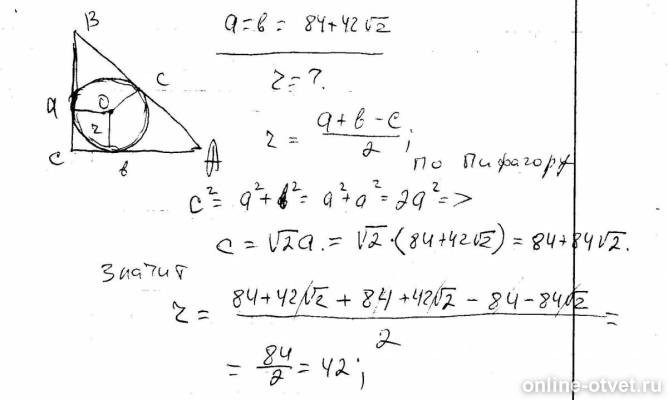 B
a = b = 84+42√2
c
r = ?
a
O
r
C
b
A
r = (a + b - c)/2;
по Пифагору
c² = a² + b² = a² + a² = 2a² =>
c = √2a. = √2·(84+42√2) = 84+84√2.
Значит
r = (84+42√2 + 84+42√2 - 84 - 84√2)/2 =
= 84/2 = 42;
online-otvet.ru